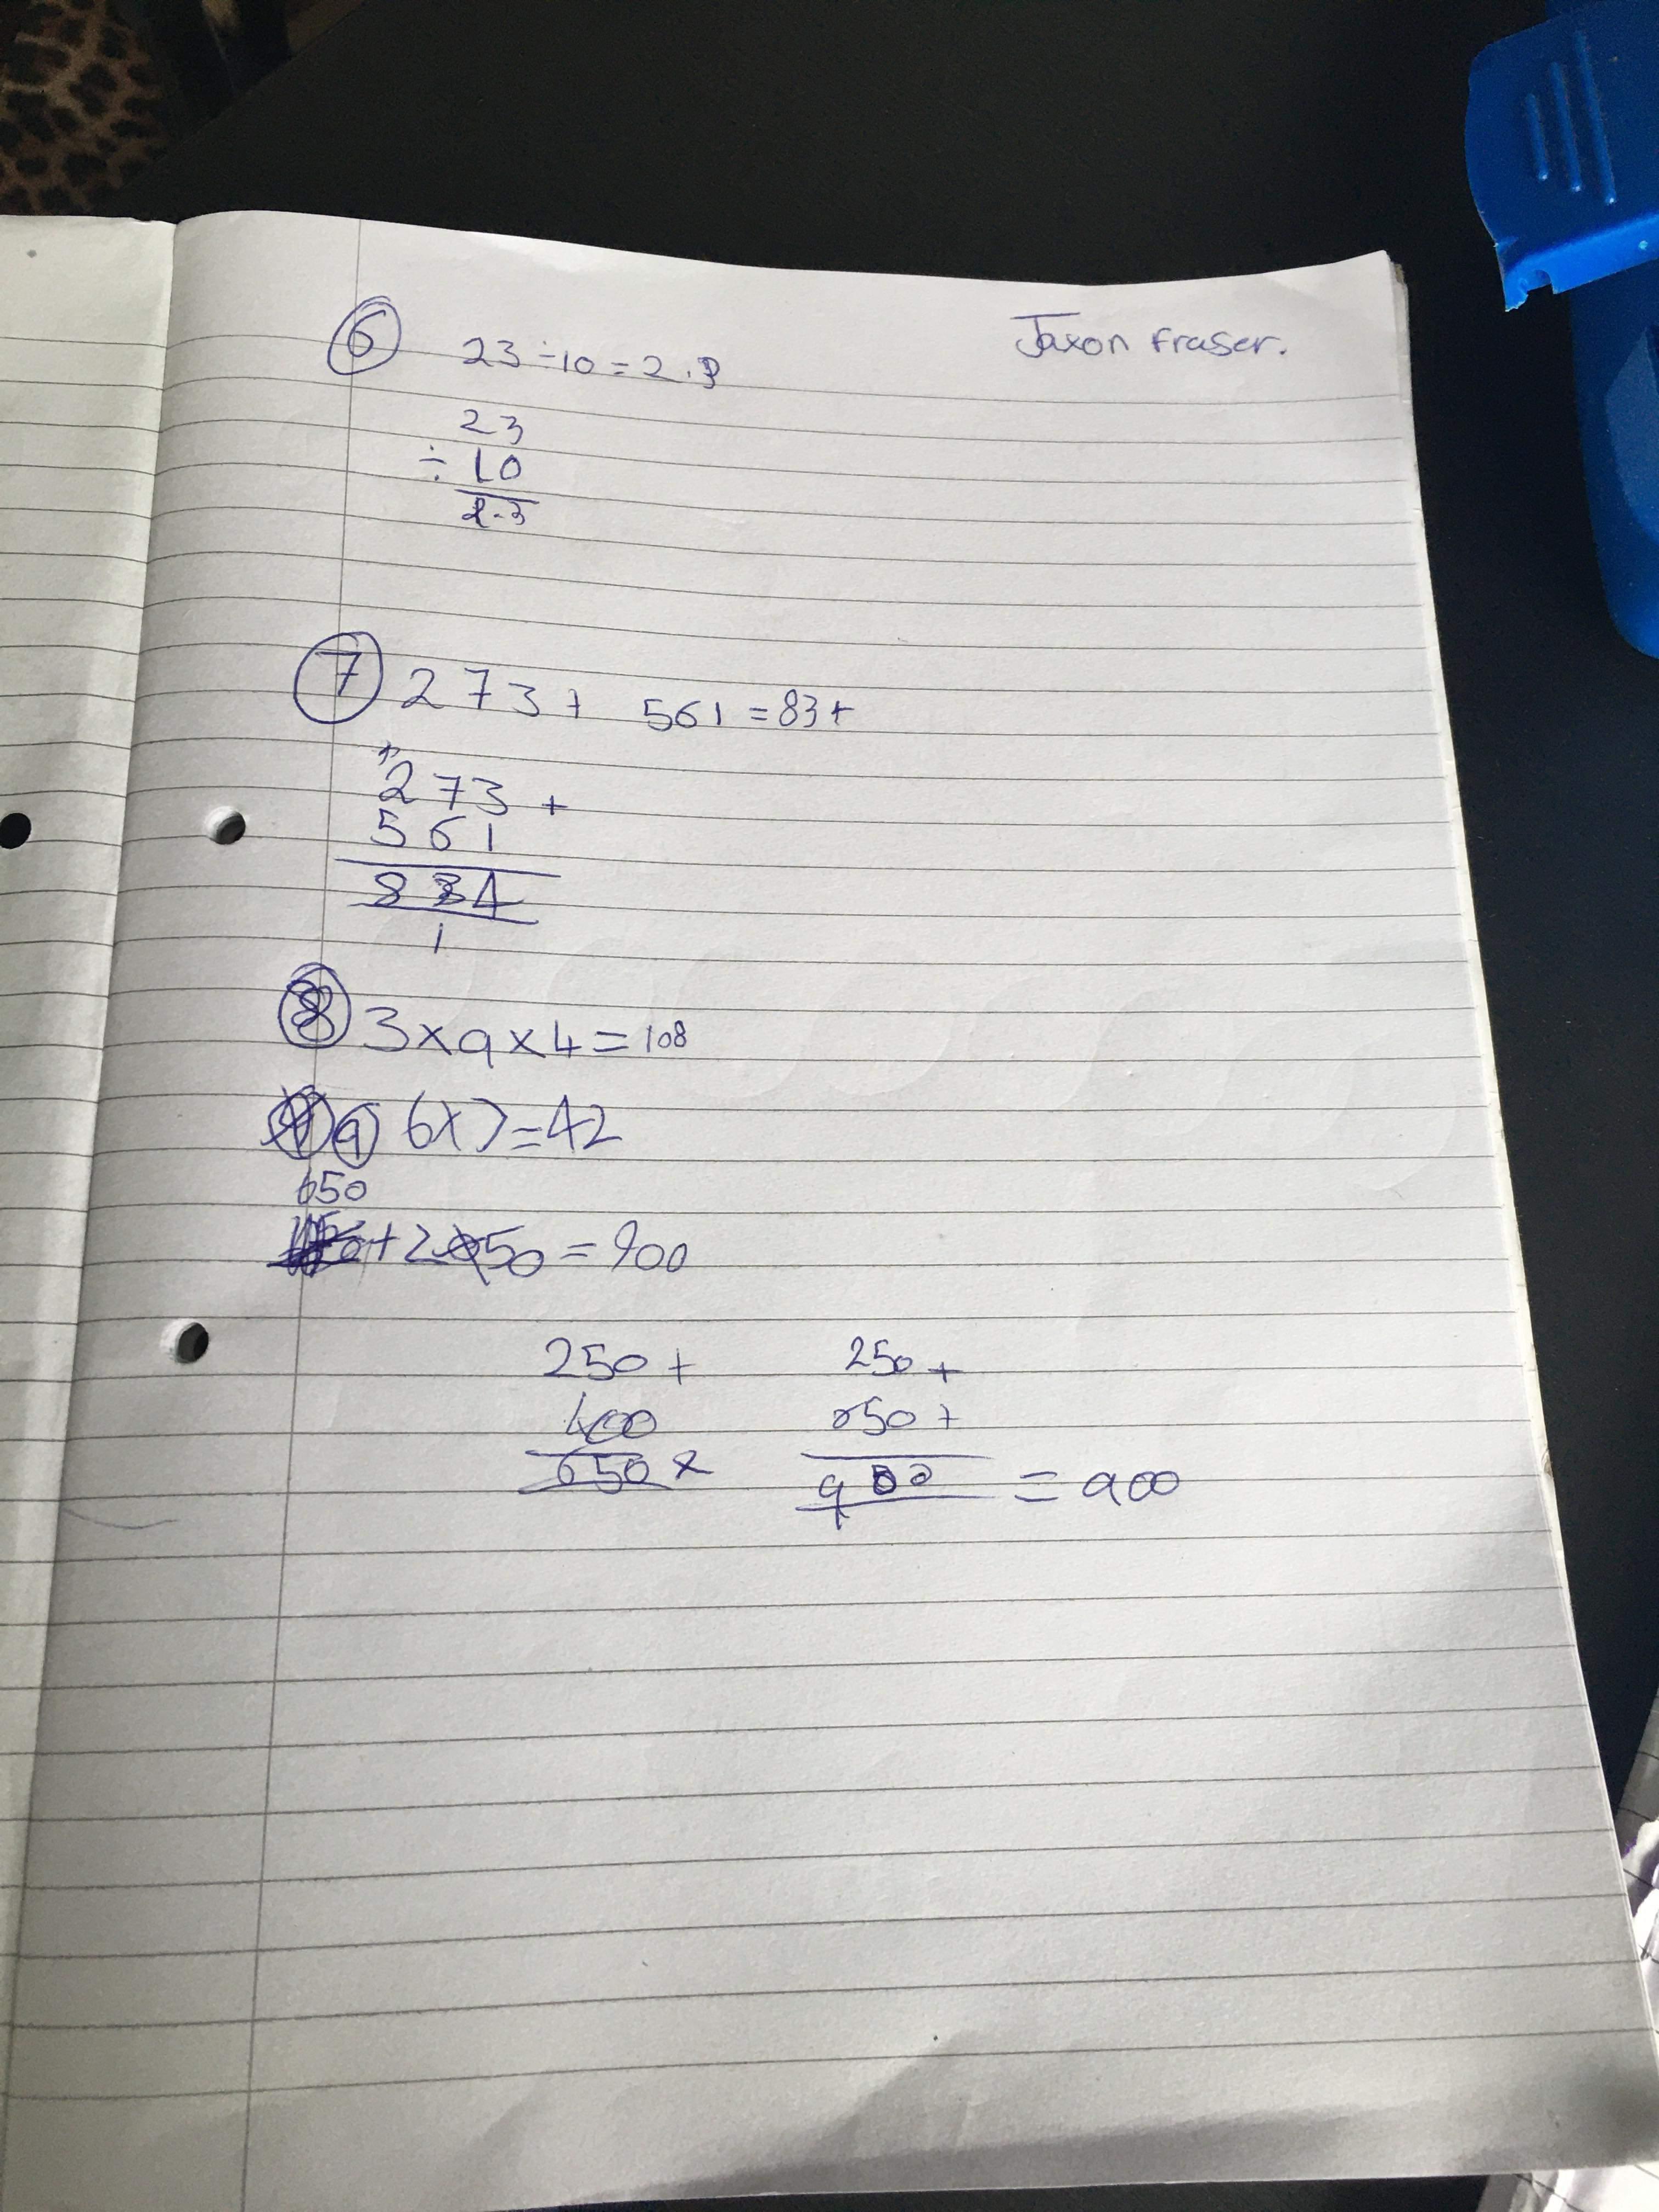 Jaxon Fraser.
6 23 ÷ 10 = 2.3
23
÷ 10
2.3
7 273 + 561 = 834
273 +
561
834
1
8 3 x 9 x 4 = 108
9 6 x 7 = 42
650
+ 250 = 900
250 +
400
650 x
250 +
650 +
900 = 900